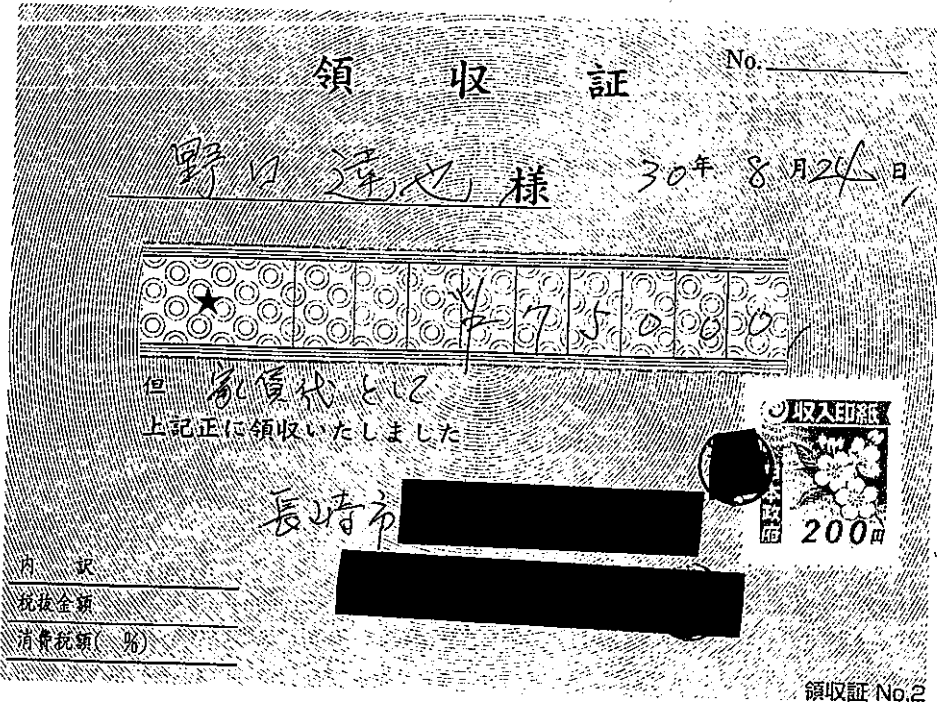 領収証 No.
野口 達也 様 30年 8月24日
★ ¥75000
但 家賃代として
上記正に領収いたしました
収入印紙
200円
長崎市
内訳
税抜金額
消費税額( %)
領収証 No.2